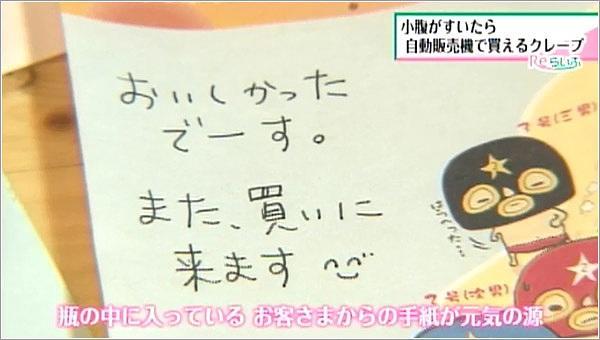 小腹がすいたら
自動販売機で買えるクレープ
Reらいふ
おいしかった
でーす。
また、買いに
来ます
7号(三男)
7号(次男)
瓶の中に入っている お客さまからの手紙が元気の源